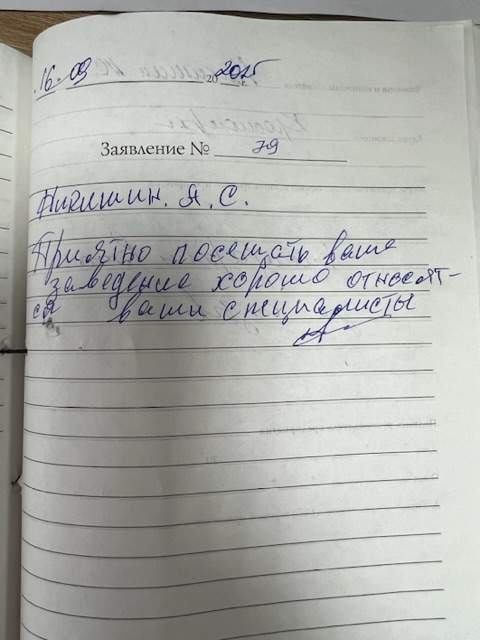 16.09 2025
Заявление № 79
А. С.
Приятно посещать ваше
заведение хорошо относят-
ся ваши специалисты